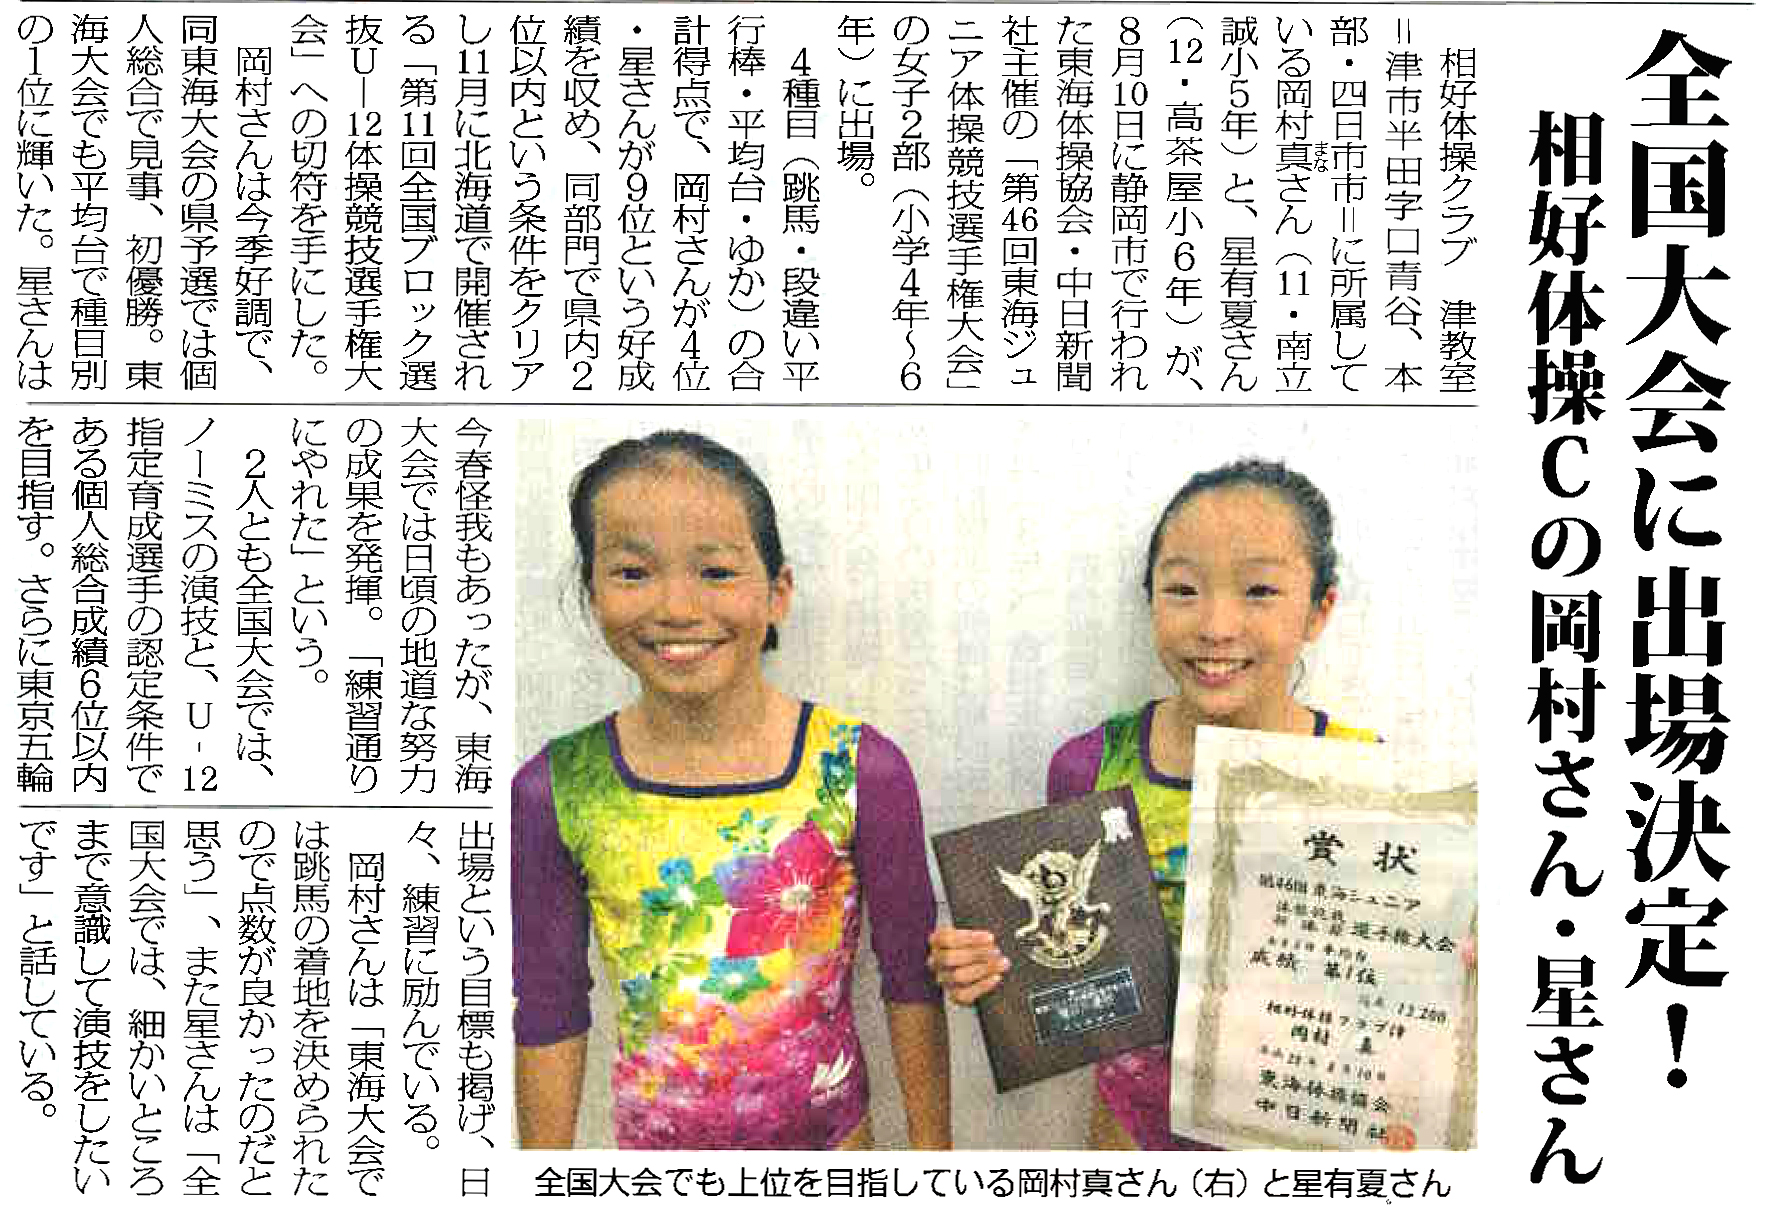 全国大会に出場決定！
相好体操Cの岡村さん・星さん
　相好体操クラブ　津教室
＝津市半田字口青谷、本
部・四日市市＝に所属して
いる岡村真さん（11・南立
まな
誠小5年）と、星有夏さん
（12・高茶屋小6年）が、
8月10日に静岡市で行われ
た東海体操協会・中日新聞
社主催の「第46回東海ジュ
ニア体操競技選手権大会」
の女子2部（小学4年～6
年）に出場。
　4種目（跳馬・段違い平
行棒・平均台・ゆか）の合
計得点で、岡村さんが4位
・星さんが9位という好成
績を収め、同部門で県内2
位以内という条件をクリア
し11月に北海道で開催され
る「第11回全国ブロック選
抜U―12体操競技選手権大
会」への切符を手にした。
　岡村さんは今季好調で、
同東海大会の県予選では個
人総合で見事、初優勝。東
海大会でも平均台で種目別
の1位に輝いた。星さんは
今春怪我もあったが、東海
大会では日頃の地道な努力
の成果を発揮。「練習通り
にやれた」という。
　2人とも全国大会では、
ノーミスの演技と、U-12
指定育成選手の認定条件で
ある個人総合成績6位以内
を目指す。さらに東京五輪
出場という目標も掲げ、日
々、練習に励んでいる。
　岡村さんは「東海大会で
は跳馬の着地を決められた
ので点数が良かったのだと
思う」、また星さんは「全
国大会では、細かいところ
まで意識して演技をしたい
です」と話している。
賞状
第46回東海ジュニア
選手権大会
成績 第1位
13,200
相好体操クラブ津
岡村 真
東海体操協会
中日新聞社
全国大会でも上位を目指している岡村真さん（右）と星有夏さん